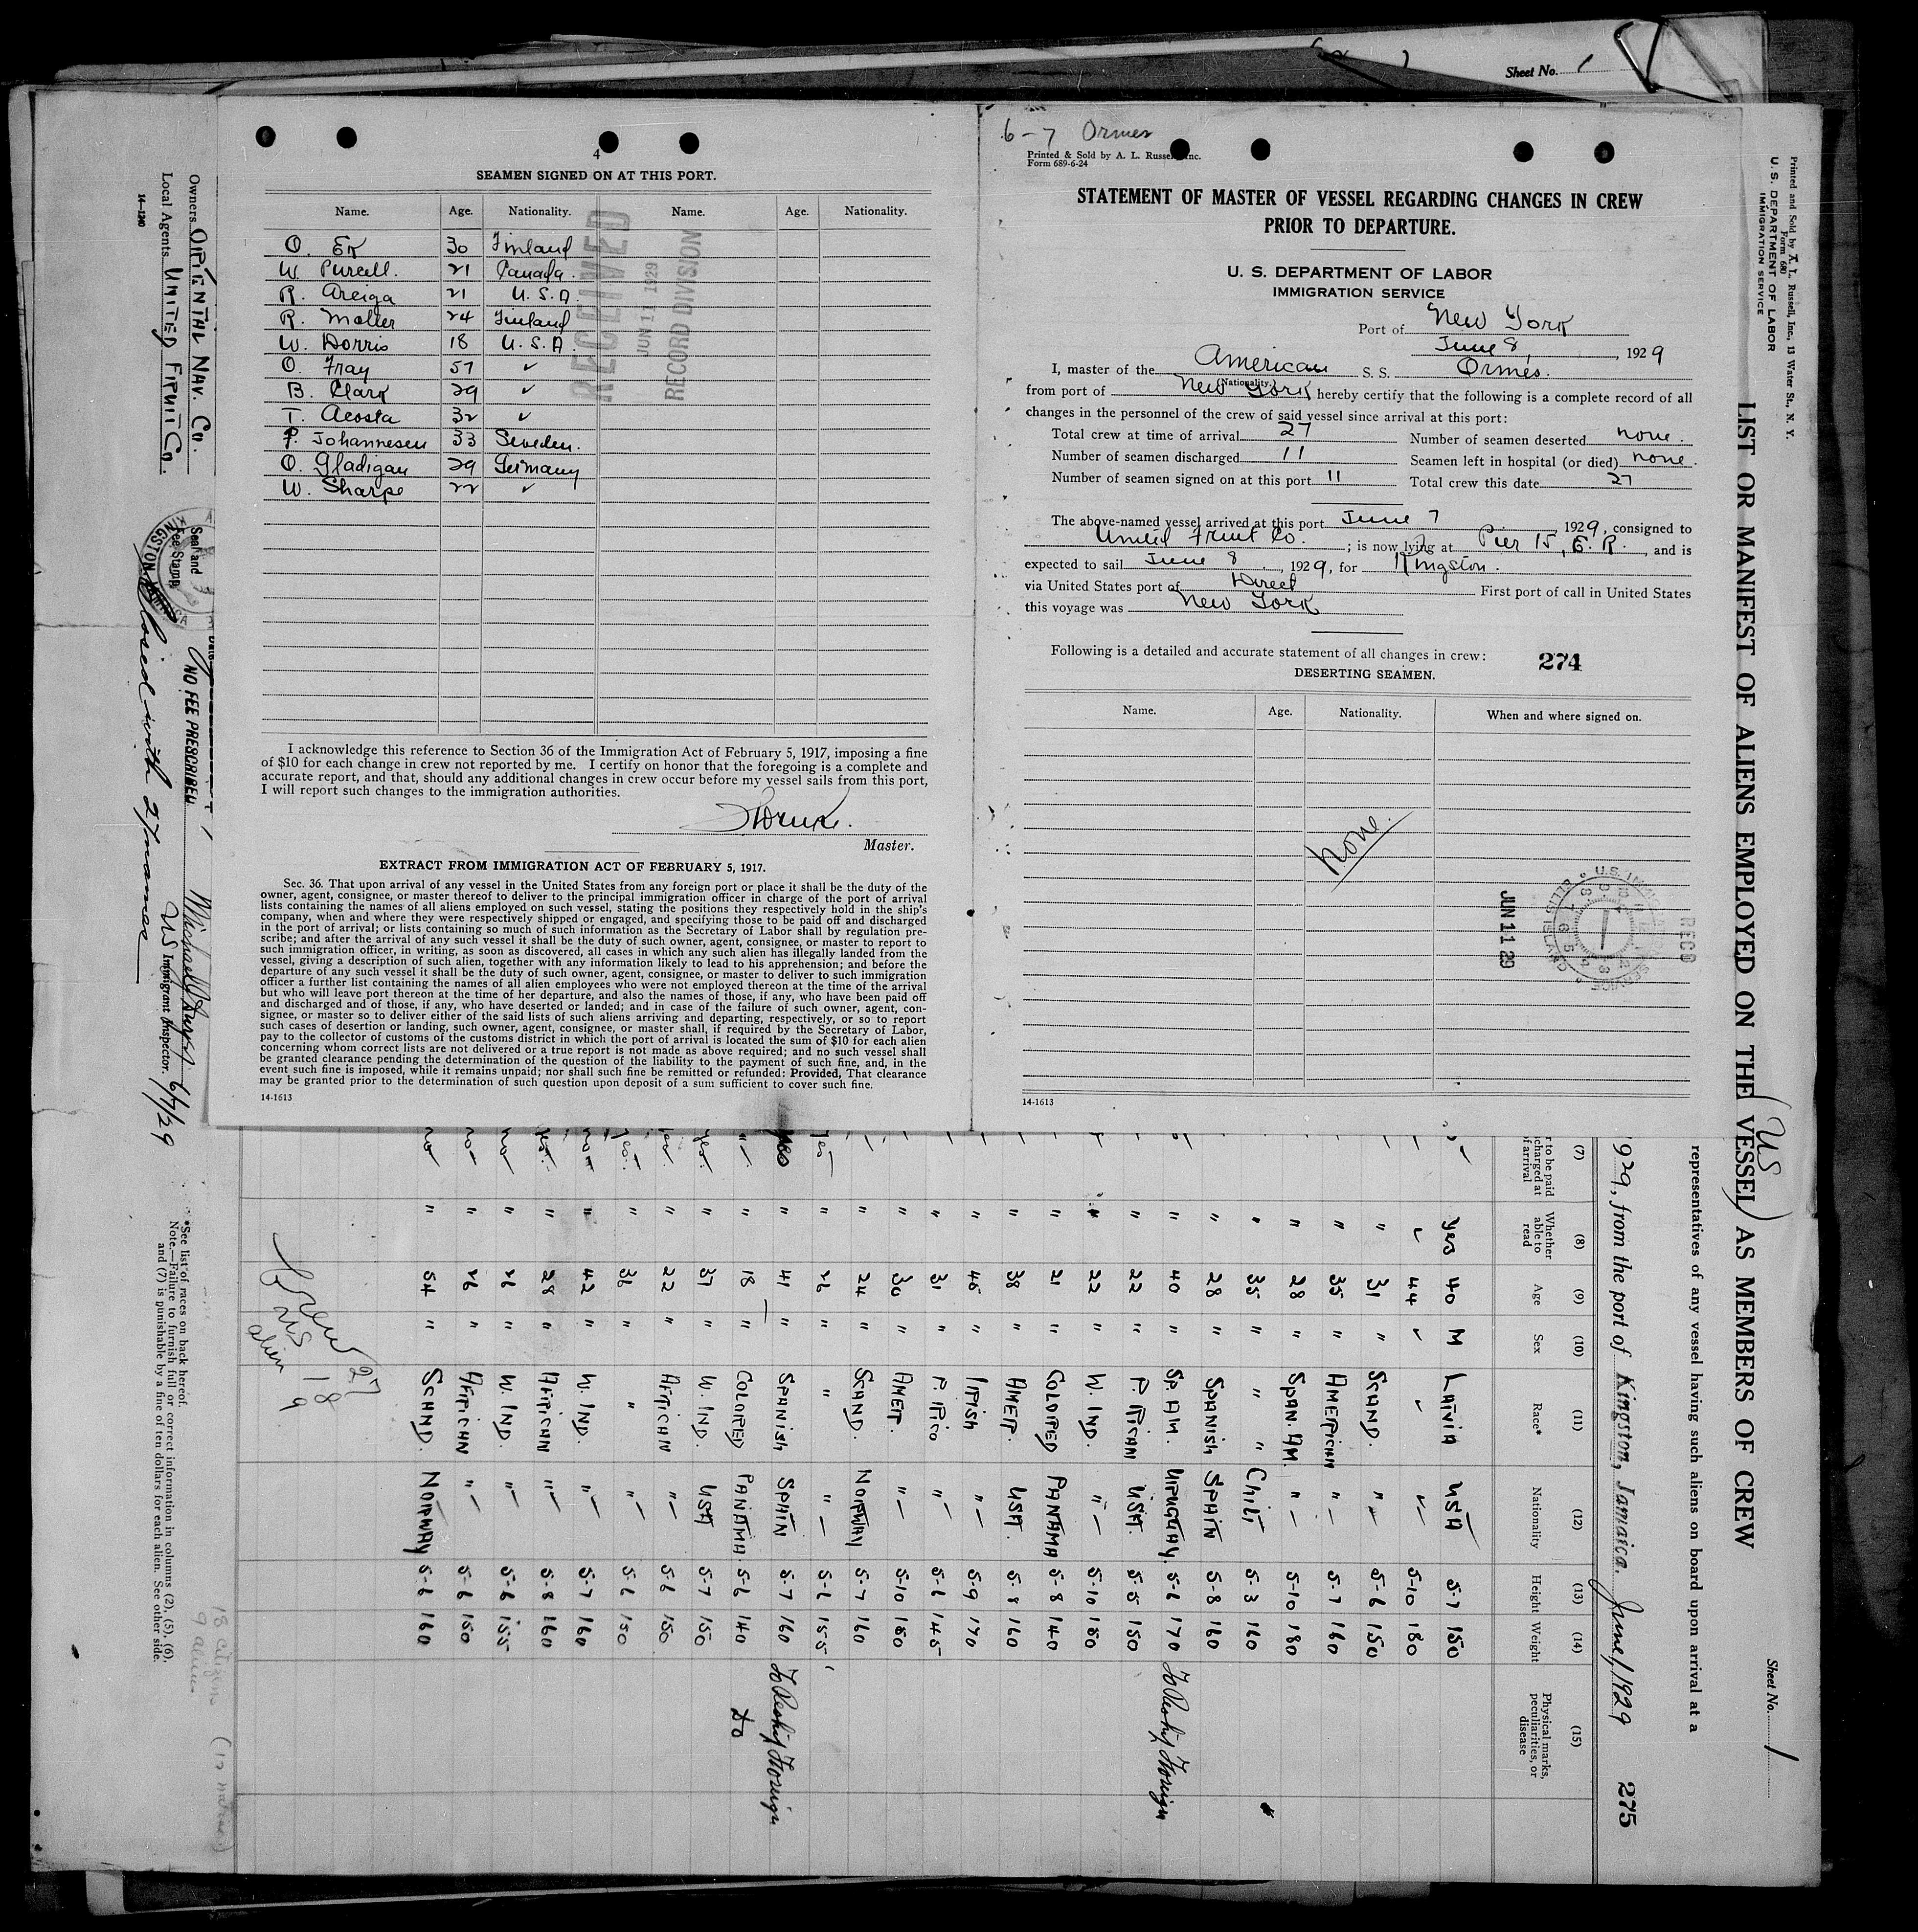 Sheet No. 1
4
SEAMEN SIGNED ON AT THIS PORT.
Name. Age. Nationality. Name. Age. Nationality.
O. Ek 30 Finland
W. Purcell. 21 Canada.
R. Areiga 21 U.S.A.
R. Moller 24 Finland
W. Dorris 18 U.S.A.
O. Fray 57 ✓
B. Clark 29 ✓
T. Acosta 32 ✓
P. Johannesen 33 Sweden.
O. Gladigau 29 Germany
W. Sharpe 22 ✓
RECEIVED
JUN 11 1929
RECORD DIVISION
I acknowledge this reference to Section 36 of the Immigration Act of February 5, 1917, imposing a fine
of $10 for each change in crew not reported by me. I certify on honor that the foregoing is a complete and
accurate report, and that, should any additional changes in crew occur before my vessel sails from this port,
I will report such changes to the immigration authorities.
Master.
EXTRACT FROM IMMIGRATION ACT OF FEBRUARY 5, 1917.
Sec. 36. That upon arrival of any vessel in the United States from any foreign port or place it shall be the duty of the
owner, agent, consignee, or master thereof to deliver to the principal immigration officer in charge of the port of arrival
lists containing the names of all aliens employed on such vessel, stating the positions they respectively hold in the ship's
company, when and where they were respectively shipped or engaged, and specifying those to be paid off and discharged
in the port of arrival; or lists containing so much of such information as the Secretary of Labor shall by regulation pre-
scribe; and after the arrival of any such vessel it shall be the duty of such owner, agent, consignee, or master to report to
such immigration officer, in writing, as soon as discovered, all cases in which any such alien has illegally landed from the
vessel, giving a description of such alien, together with any information likely to lead to his apprehension; and before the
departure of any such vessel it shall be the duty of such owner, agent, consignee, or master to deliver to such immigration
officer a further list containing the names of all alien employees who were not employed thereon at the time of the arrival
but who will leave port thereon at the time of her departure, and also the names of those, if any, who have been paid off
and discharged and of those, if any, who have deserted or landed; and in case of the failure of such owner, agent, con-
signee, or master so to deliver either of the said lists of such aliens arriving and departing, respectively, or so to report
such cases of desertion or landing, such owner, agent, consignee, or master shall, if required by the Secretary of Labor,
pay to the collector of customs of the customs district in which the port of arrival is located the sum of $10 for each alien
concerning whom correct lists are not delivered or a true report is not made as above required; and no such vessel shall
be granted clearance pending the determination of the question of the liability to the payment of such fine, and, in the
event such fine is imposed, while it remains unpaid; nor shall such fine be remitted or refunded: Provided, That clearance
may be granted prior to the determination of such question upon deposit of a sum sufficient to cover such fine.
14-1613
6-7 Ormes
Printed & Sold by A. L. Russell, Inc.
Form 689-6-24
STATEMENT OF MASTER OF VESSEL REGARDING CHANGES IN CREW
PRIOR TO DEPARTURE.
U. S. DEPARTMENT OF LABOR
IMMIGRATION SERVICE
Port of New York
June 8, 1929
I, master of the American S. S. Ormes.
(Nationality.)
from port of New York hereby certify that the following is a complete record of all
changes in the personnel of the crew of said vessel since arrival at this port:
Total crew at time of arrival 27 Number of seamen deserted none.
Number of seamen discharged 11 Seamen left in hospital (or died) none.
Number of seamen signed on at this port 11 Total crew this date 27
The above-named vessel arrived at this port June 7, 1929, consigned to
United Fruit Co. ; is now lying at Pier 15, E. R. and is
expected to sail June 8, 1929, for Kingston.
via United States port of Direct First port of call in United States
this voyage was New York
Following is a detailed and accurate statement of all changes in crew: 274
DESERTING SEAMEN.
Name. Age. Nationality. When and where signed on.
none.
JUN 11 29
U.S. IMMIGRATION SERVICE
ELLIS ISLAND
REC'D
14-1613
Printed and Sold by A. L. Russell, Inc., 13 Water St., N. Y.
Form 680
U. S. DEPARTMENT OF LABOR
IMMIGRATION SERVICE
Sheet No. 1
(US
LIST OR MANIFEST OF ALIENS EMPLOYED ON THE VESSEL) AS MEMBERS OF CREW
representatives of any vessel having such aliens on board upon arrival at a
929, from the port of Kingston, Jamaica. June 1, 1929 275
(7) (8) (9) (10) (11) (12) (13) (14) (15)
r to be paid
charged at
of arrival
Whether able to read
Age
Sex
Race*
Nationality
Height
Weight
Physical marks, peculiarities, or disease
yes 40 M LATVIA USA 5-7 150
✓ 44 ✓ ✓ ✓ 5-10 180
" 31 " SCAND. " 5-6 150
" 35 " AMERICAN " 5-7 160
" 28 " SPAN. AM. " 5-10 180
" 35 " " CHILI 5-3 160
" 28 " SPANISH SPAIN 5-8 160
" 40 " SP. AM. URUGUAY. 5-6 170 To Reship Foreign
" 22 " P. RICAN USA. 5-5 150
" 22 " W. IND. " 5-10 180
" 21 " COLORED PANAMA 5-8 140
" 38 " AMER. USA. 5-8 160
" 45 " IRISH " 5-9 170
" 31 " P. RICO " 5-6 145
" 30 " AMER. " 5-10 180
" 24 " SCAND. NORWAY 5-7 160
yes " 26 " " " 5-6 155
yes " 41 " SPANISH SPAIN 5-7 160 To Reship Foreign
" " 18 " COLORED PANAMA. 5-6 140 Do
yes. " 37 " W. IND. USA 5-7 150
yes. " 22 " AFRICAN " 5-6 150
yes. " 36 " " " 5-6 150
no " 42 " W. IND. " 5-7 160
yes. " 28 " AFRICAN " 5-8 160
no " 26 " W. IND. " 5-6 155
no " 26 " AFRICAN " 5-6 150
no " 54 " SCAND. NORWAY 5-6 160
Crew 27
US 18
alien 9
18 citizens
9 aliens
*See list of races on back hereof.
Note.—Failure to furnish full or correct information in columns (2), (5), (6),
and (7) is punishable by a fine of ten dollars for each alien. See other side.
Owners ORIENTAL NAV. Co.
Local Agents UNITED FRUIT Co.
14-1240
Seal and
Fee Stamp
KINGSTON
NO FEE PRESCRIBED
Closed with 27 names
US Immigrant Inspector.
6/7/29